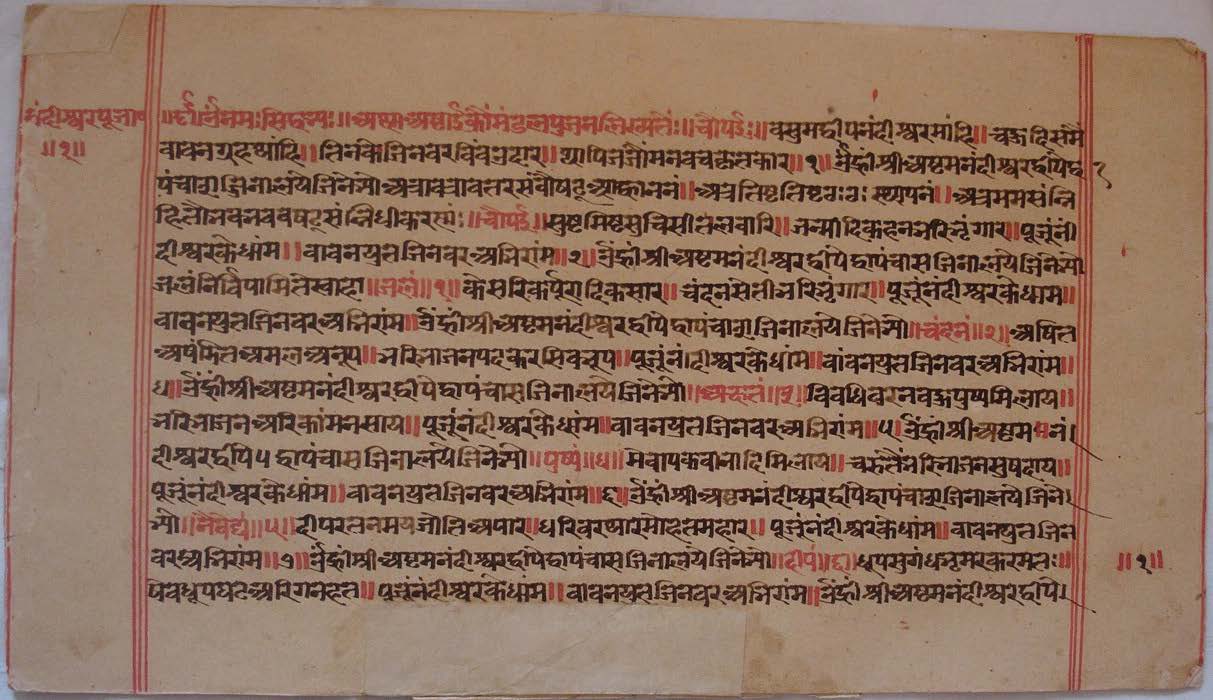 नंदीश्वरपूजा०
॥१॥
॥र्द०॥ ॐ नमः सिद्धेभ्यः॥ अथ अष्टाईको मंडलपूजन लिख्यतेः॥ चौपईः॥ वसुमदीपनंदीश्वरमांहि॥ चउदिसमै
बावनग्रहथांहि॥ तिनके जिनवरबिंबउदार॥ थापि जजौं मनवचक्रतकार॥१॥ ॐ ह्रीं श्री अष्टमनंदीश्वरद्वीपेद्वा
पंचाशजिनालये जिनेभ्यो अत्रावत्रावतरसंवौषट्आह्वाननं॥ अत्र तिष्ट तिष्ट ठः ठः स्थापनं॥ अत्र मम संन्नि
हितो भव भव वषट् संन्निधीकरणंः॥ चौपई॥ सुष्टमिष्टसुचिसीतलवारि॥ जन्मादिकहनन भरि भृंगार॥ पूजूंनं
दीश्वरकेधांम॥ बावनयुतजिनवरअभिरांम॥२॥ ॐ ह्रीं श्री अष्टमनंदीश्वरद्वीपेद्वापंचासजिनालये जिनेभ्यो
जलंनिर्विपामितेस्वाहा॥ जलं॥१॥ केसरिकर्पुरादिकसार॥ चंदनसेती भरि भृंगार॥ पूजूंनंदीश्वरकेधाम॥
बावनयुतजिनवरअभिरांम॥ ॐ ह्रीं श्री अष्टमनंदीश्वरद्वीपेद्वापंचाशजिनालये जिनेभ्यो॥ चंदनं॥२॥ अषित
अषंमितअमलअनूप॥ भरि भाजन पदकरसिवभूप॥ पूजूंनंदीश्वरकेधांम॥ बांवनयुतजिनवरअभिरांम॥
४॥ ॐ ह्रीं श्री अष्टमनंदीश्वरद्वीपेद्वापंचासजिनालये जिनेभ्यो॥ अक्षतं॥३॥ विवधिवरनवऊपुष्पमिलाय॥
भरि भाजन अरिकांमनसाय॥ पूजूंनंदीश्वरकेधांम॥ बावनयुतजिनवरअभिरांम॥५॥ ॐ ह्रीं श्री अष्टमनं
दीश्वरद्वीपेद्वापंचासजिनालये जिनेभ्यो॥ पुष्पं॥४॥ मेवापकवानादिमिलाय॥ चरुतैं भरि भाजन सुषदाय॥
पूजूंनंदीश्वरकेधांम॥ बावनयुतजिनवरअभिरांम॥६॥ ॐ ह्रीं श्री अष्टमनंदीश्वरद्वीपेद्वापंचाशजिनालये जिने
भ्यो॥ नैवेद्यं॥५॥ दीपरतनमयजोतिअपार॥ धरिवरथारमोहतमहार॥ पूजूंनंदीश्वरकेधांम॥ बावनयुतजिन
वरअभिरांम॥७॥ ॐ ह्रीं श्री अष्टमनंदीश्वरद्वीपेद्वापंचासजिनालये जिनेभ्यो॥ दीपं॥६॥ धूपसुगंधभ्रमरकरमत॥
॥१॥
षेवधूपघटअरिगनहत॥ पूजूंनंदीश्वरकेधांम॥ बावनयुतजिनवरअभिरांम॥ ॐ ह्रीं श्री अष्टमनंदीश्वरद्वीपे